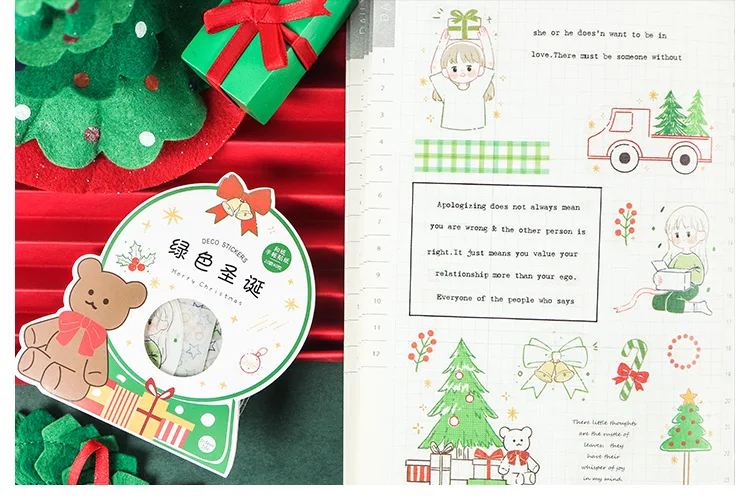 DECO STICKERS
绿色圣诞
Merry Christmas
和纸
手帐贴纸
she or he does'n want to be in
love.There must be someone without
1
2
3
4
5
6
7
8
9
10
11
12
Apologizing does not always mean
you are wrong & the other person is
right.It just means you value your
relationship more than your ego.
Everyone of the people who says
There little thoughts
are the rustle of
leaves they
have their
whisper of joy
in my mind.